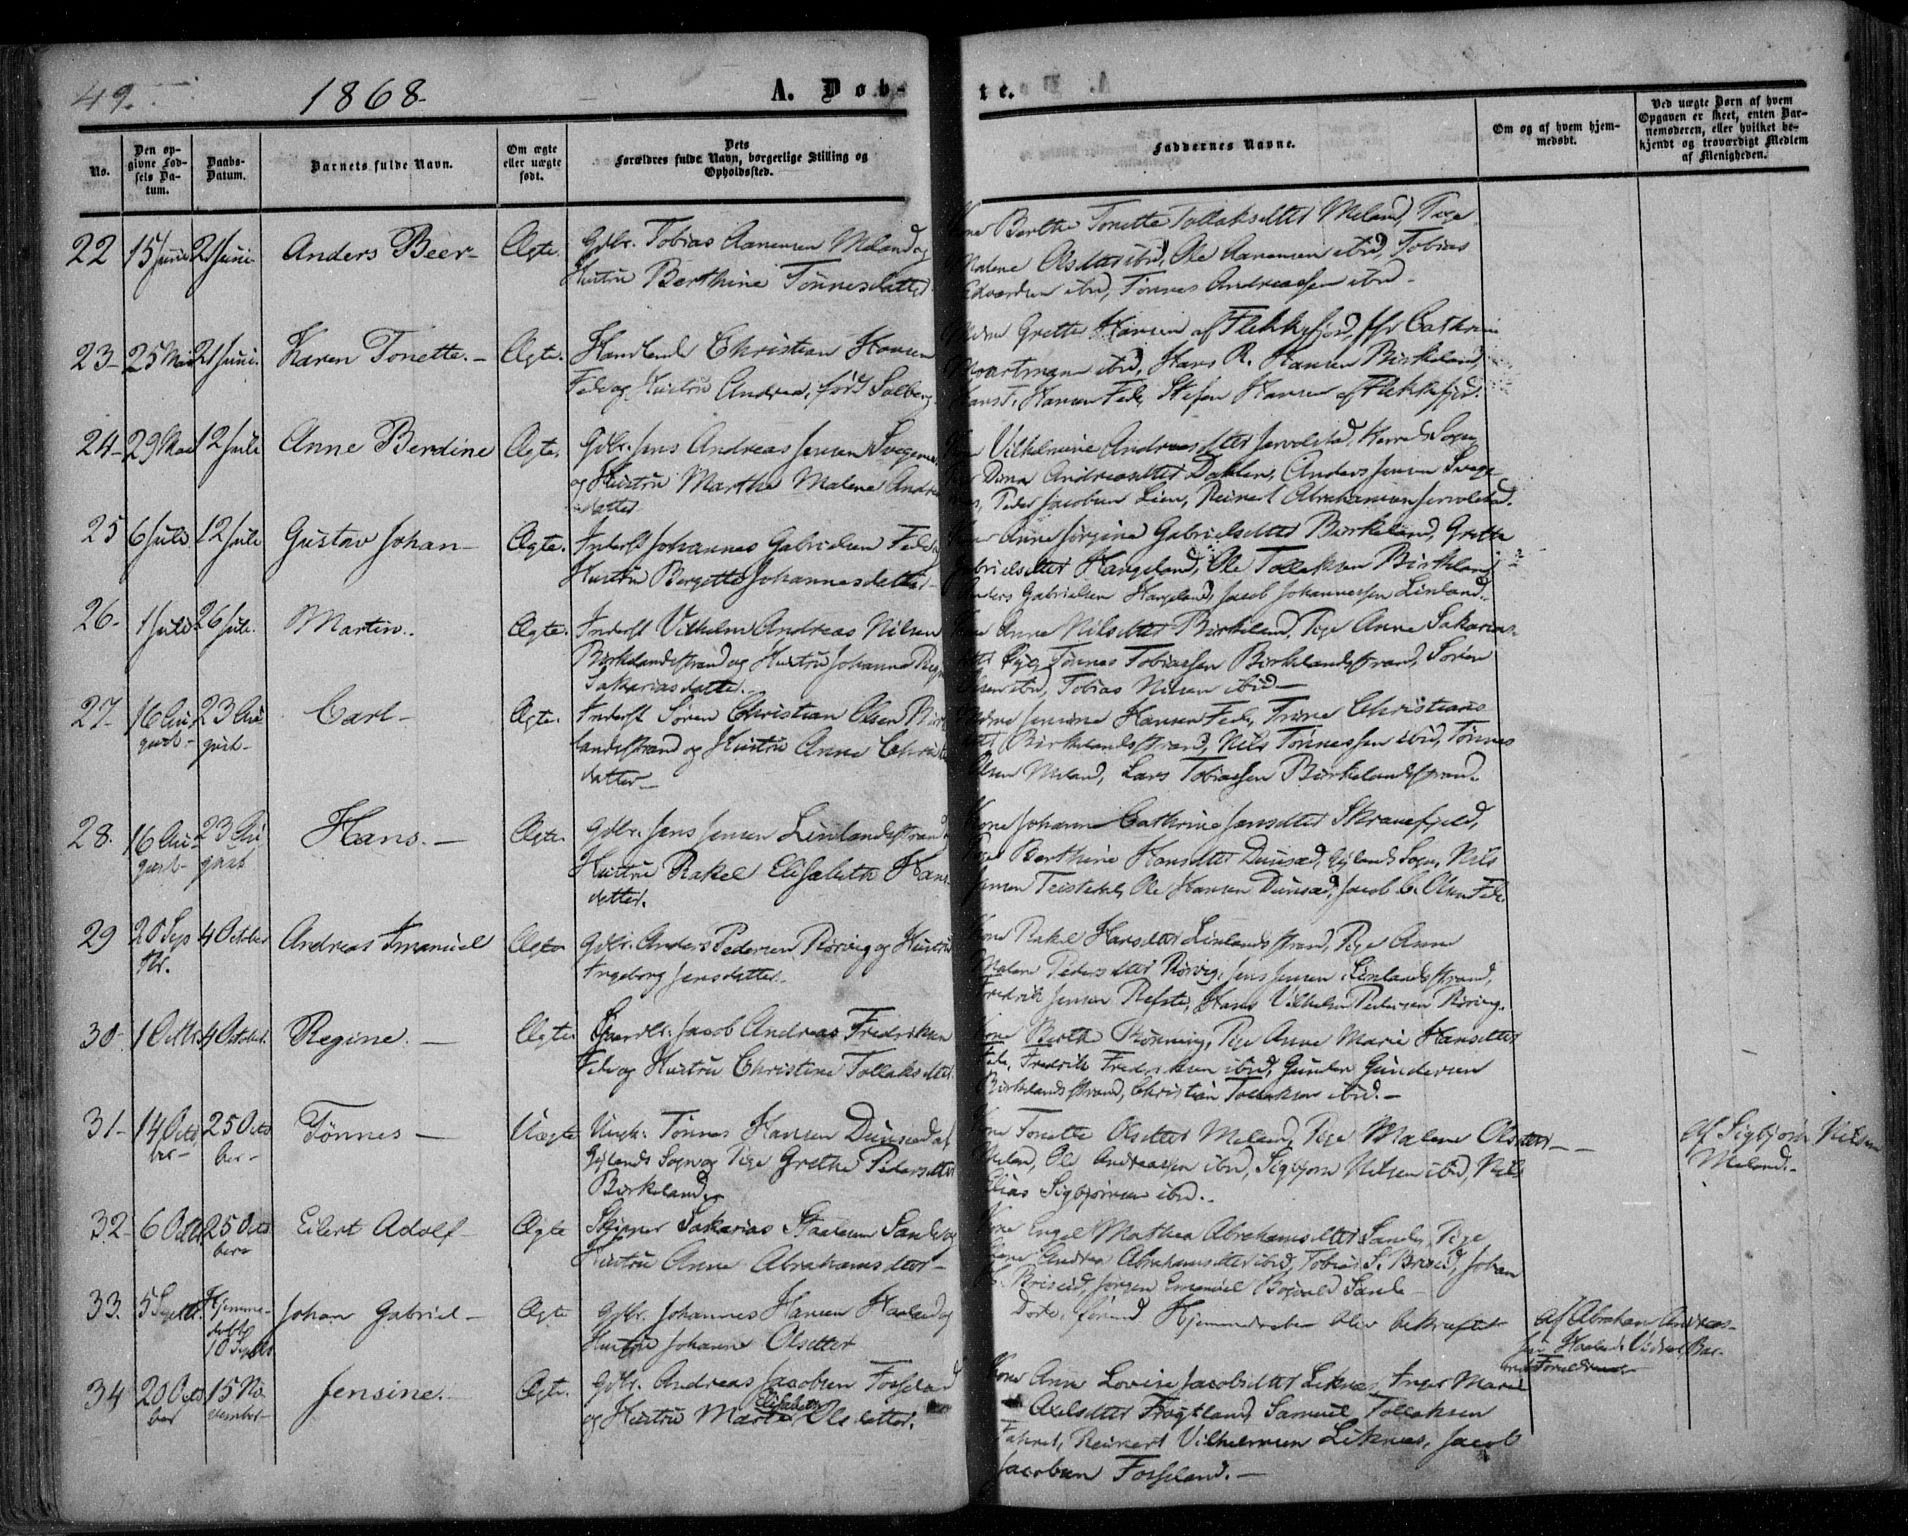 49.
1868.
A. Døb-
te.
No.
Den op-
givne Fød-
sels Da-
tum.
Daabs-
Datum.
Barnets fulde Navn.
Om ægte
eller uægte
født.
Dets
Forældres fulde Navn, borgerlige Stilling og
Opholdssted.
Faddernes Navne.
Om og af hvem hjem-
medøbt.
Ved uægte Børn af hvem
Opgaven er skeet, enten Bar-
nemoderen, eller hvilket be-
kjendt og troværdigt Medlem
af Menigheden.
22 15 Juni 21 Juni Anders Beer- Ægte. Gdbr. Tobias Aanensen Meland og
Hustru Berthine Tønnesdatter
Kone Berthe Tonette Tollaksdtter Meland, Pige
Malene Olsdtter ibid, Ole Aanensen ibid, Tobias
Edvardsen ibid, Tønnes Andreassen ibid-
23- 25 Mai 21 Juni. Karen Tonette.- Ægte. Handlende Christian Hansen
Fede og Hustru Andrea, født Solberg
Grethe Hansen af Flekkefjord, Cathrine
ibid, Hans R. Hansen Birkeland,
Hans F. Hansen Fede, Stefen Hansen af Flekkefjord.
24- 29 Mai 12 Juli Anne Berdine Ægte. Gdbr. Jens Andreas Jensen
og Hustru Marthe Malene Andreas
datter
Vilhelmine Andreasdtter Jervolstad, Sogn
Dina Andreasdtter Dahlen, Anders Jensen
Peder Jacobsen Lien, Reinert Abrahamsen Jervolstad.
25 6 Juli 12 Juli Gustav Johan- Ægte. Inderst Johannes Gabrielsen Fede og
Hustru Bergette Johannesdatter-
Anne Jørgine Gabrielsdtter Birkeland, Grethe
Gabrielsdtter Haugeland, Ole Tollaksen Birkeland
Anders Gabrielsen Haugeland, Jacob Johannessen Linland.
26- 1 Juli 26 Juli. Martin. Ægte. Inderst Vilhelm Andreas Nilsen
Birkelandsstrand og Hustru Johanne
Sakariasdatter.
Kone Anne Nilsdtter Birkeland, Pige Anne Sakarias-
dtter Tønnes Tobiassen Birkelandsstrand, Søren
Olsen ibid, Tobias Nilsen ibid-
27- 16 Au-
gust- 23 Au-
gust- Carl- Ægte. Inderst Søren Christian Olsen Birke
landsstrand og Hustru Anne Christians
datter-
Jensine Hansen Fede, Trine Christians
dtter Birkelandsstrand, Nils Tønnessen ibid, Tønnes
Olsen Meland, Lars Tobiassen Birkelandsstrand.
28. 16 Au-
gust- 23 Au-
gust Hans.- Ægte. Gdbr. Jens Jensen Linlandsstrand
Hustru Rakel Elisabeth Hans
datter.
Kone Johanne Cathrine Jensdtter Skranefjeld,
Pige Berthine Hansdtter Dunsæd, Gylands Sogn, Nils
Jensen Teistedal, Ole Hansen Dunsæd, Jacob C. Olsen Fede.
29 20 Sep
tbr. 4 October Andreas Imanuel Ægte Gdbr. Anders Pedersen Rørvig og Hustru
Ingeborg Jensdatter.
Kone Rakel Hansdtter Linlandsstrand, Pige Anne
Malene Pedersdtter Rørvig, Jens Jensen Linlandsstrand,
Fredrik Jensen Refsti, Hans Vilhelm Pedersen Rørvig.
30- 1 Octbr 4 October. Regine.- Ægte Jacob Andreas Fredriksen
Fede og Hustru Christine Tollaksdtter
Kone Berthe Rønning, Pige Anne Marie Hansdtter
Fede, Fredrik Fredriksen ibid, Gunder Gundersen
Birkelandsstrand, Christian Tollaksen ibid.-
31- 14 Octo
ber- 25 Octo
ber- Tønnes- Uægte Ungk. Tønnes Hansen Dunsæd af
Gylands Sogn og Pige Grethe Pedersdtter
Birkeland.
Kone Tonette Olsdtter Meland, Pige Malene Olsdtter
Meland, Ole Andreassen ibid, Sigbjørn Nilsen ibid, Nils
Elias Sigbjørnsen ibid.
af Sigbjørn Nilsen
Meland.-
32- 6 Octbr 25 Octo
ber Eilert Adolf- Ægte Skipper Sakarias Staalesen Sande og
Hustru Anne Abrahamsdtter-
Kone Engel Mathea Abrahamsdtter Sande, Pige
Andrea Abrahamsdtter ibid, Tobias S. Briseid, Johan
S. Briseid, Jørgen Emanuel Bøgvald Sande-
33. 5 Septbr. Hjemme-
døbt
10 Septbr Johan Gabriel- Ægte Gdbr. Johannes Hansen Haaland og
Hustru Johanne Olsdtter
Døde, førend Hjemmedaaben blev bekræftet
af Abraham Andreas-
sen Haaland. Bar-
nets Forældrene.-
34 20 Octo
ber 15 No-
vember- Jensine.- Ægte. Gdbr. Andreas Jacobsen Fosseland
og Hustru Marte Elisabeth Olsdatter.
Kone Anne Lovise Jacobsdtter Liknes, Inger Marie
Axelsdtter Frøytland, Samuel Tollaksen
Reinert Vilhelmsen Liknes, Jacob
Jacobsen Fosseland.-